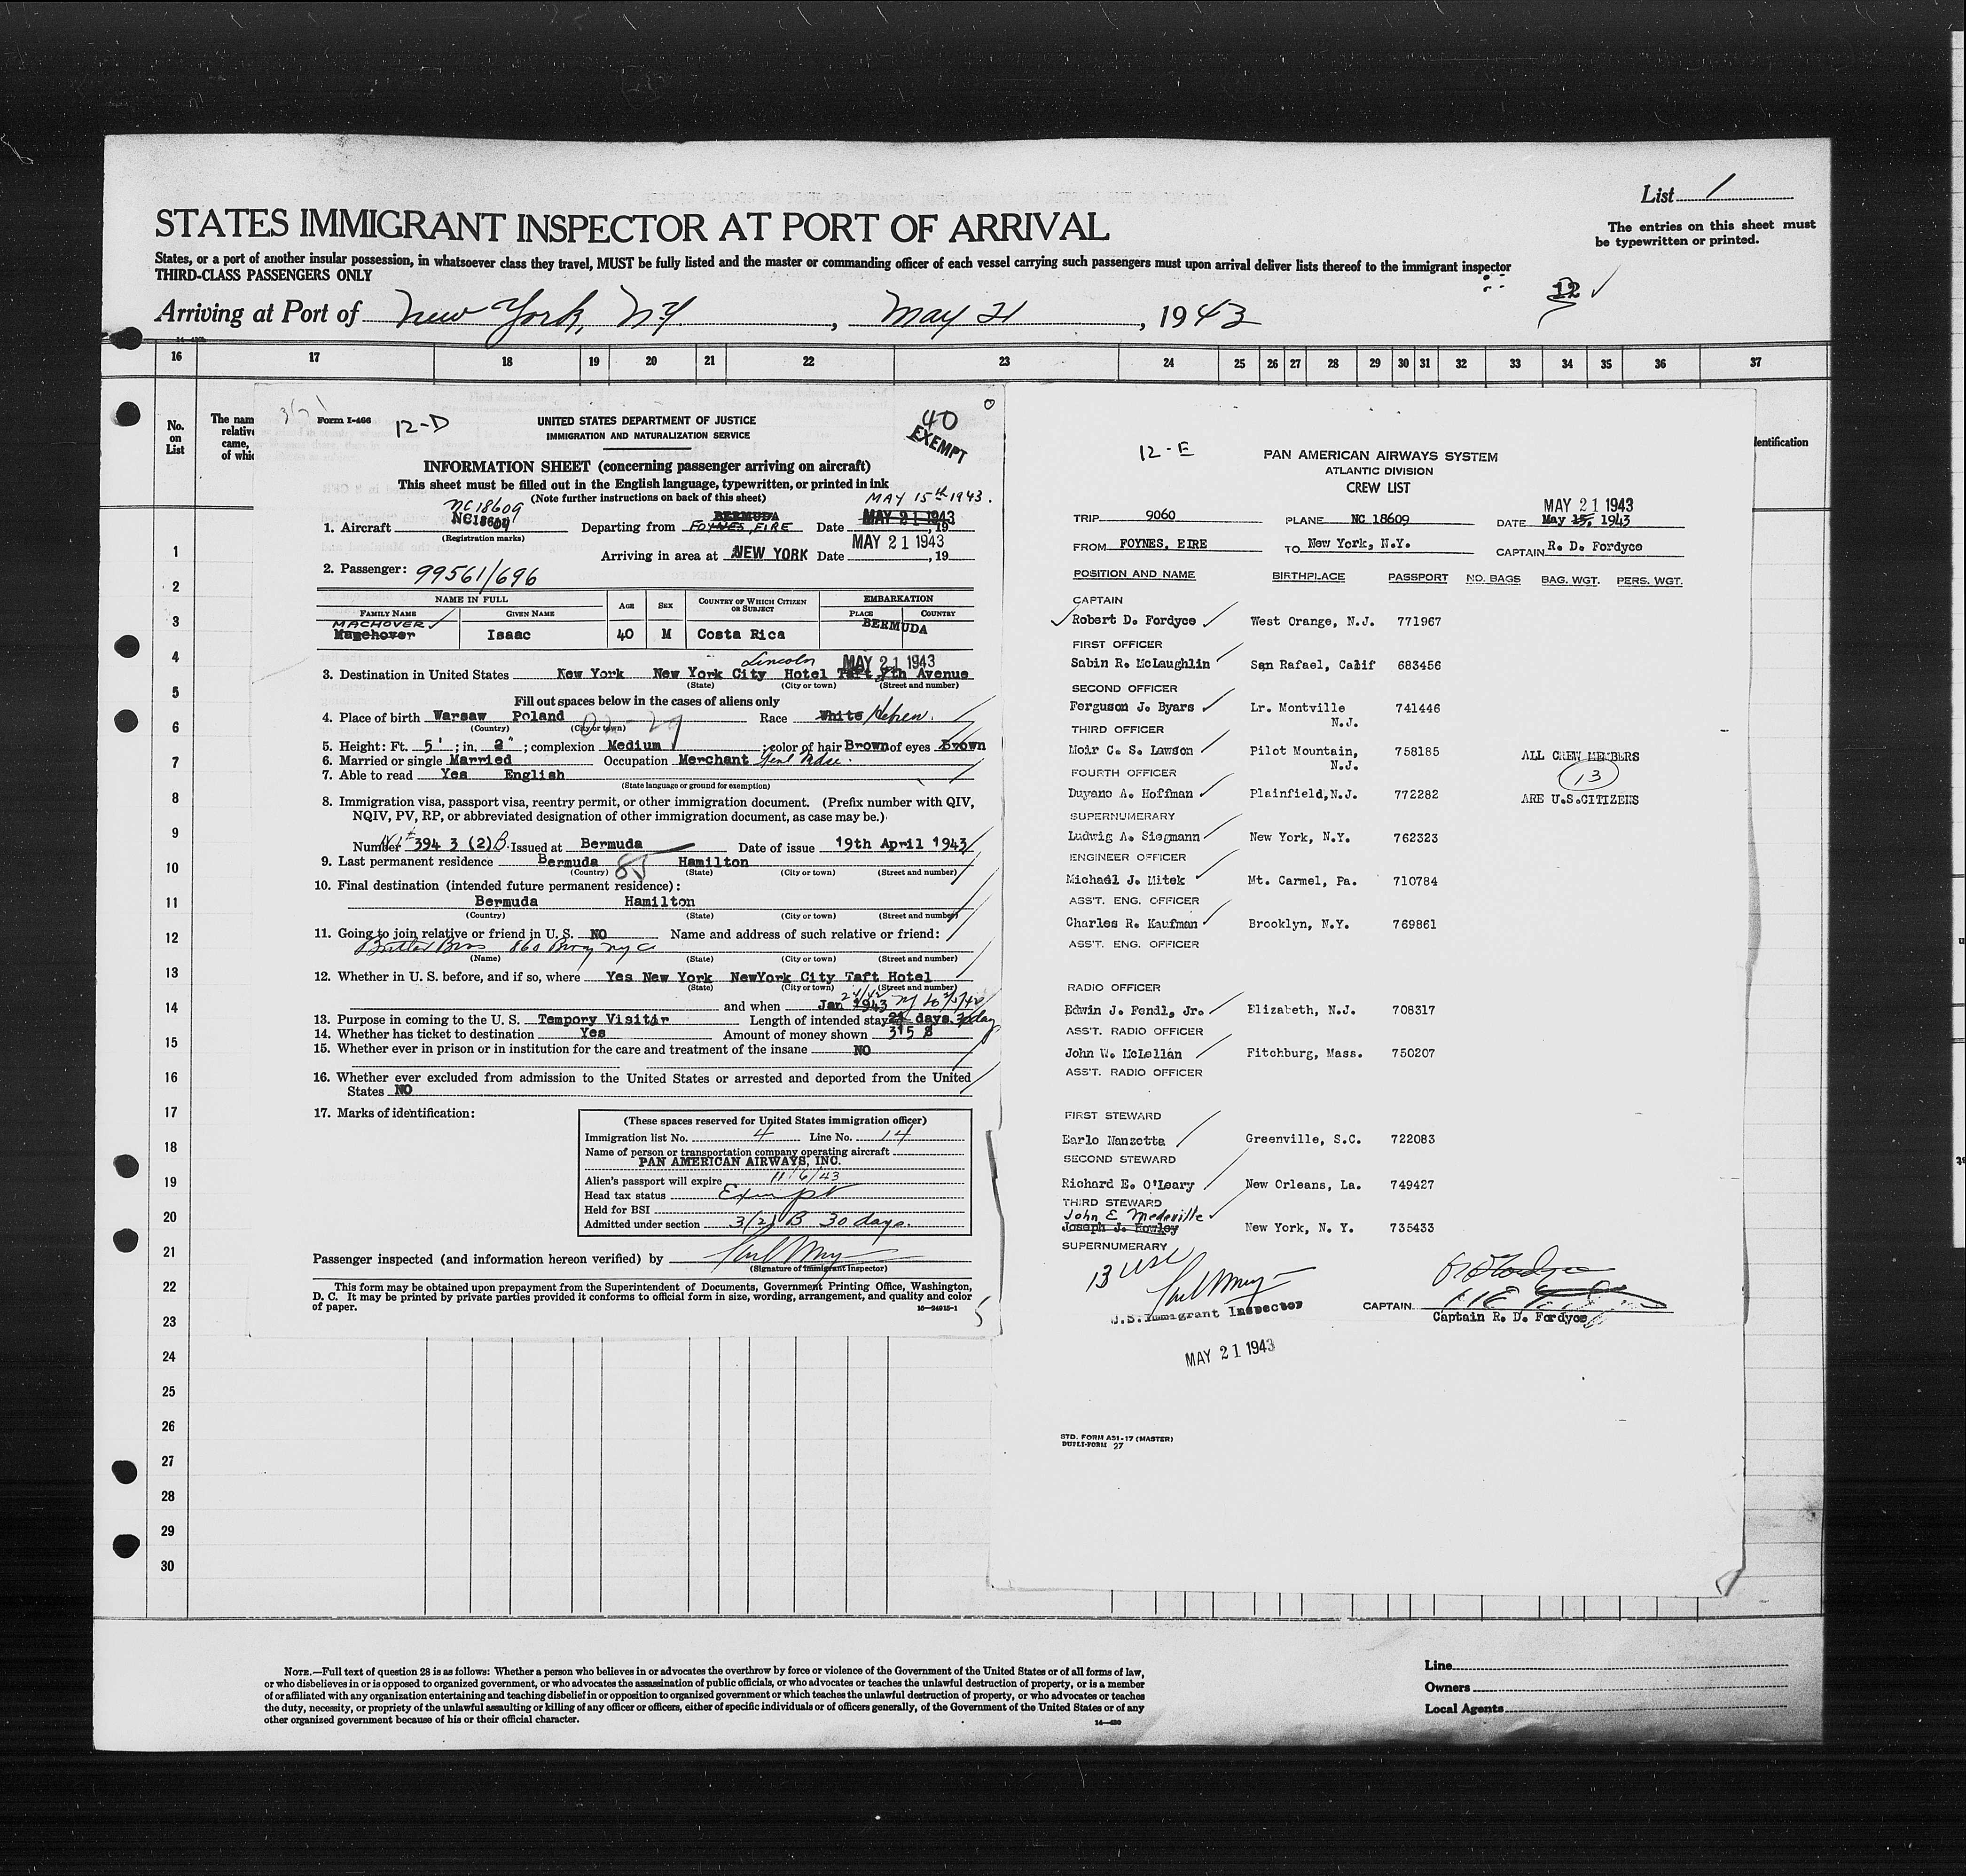 List 1
The entries on this sheet must
be typewritten or printed.
STATES IMMIGRANT INSPECTOR AT PORT OF ARRIVAL
States, or a port of another insular possession, in whatsoever class they travel, MUST be fully listed and the master or commanding officer of each vessel carrying such passengers must upon arrival deliver lists thereof to the immigrant inspector
THIRD-CLASS PASSENGERS ONLY
12
Arriving at Port of New York, NY, May 21, 1943
16 17 18 19 20 21 22 23 24 25 26 27 28 29 30 31 32 33 34 35 36 37
No.
on
List
The nam
relative
came,
of whic
dentification
1
2
3
4
5
6
7
8
9
10
11
12
13
14
15
16
17
18
19
20
21
22
23
24
25
26
27
28
29
30
Form I-466
12-D
UNITED STATES DEPARTMENT OF JUSTICE
IMMIGRATION AND NATURALIZATION SERVICE
40
EXEMPT
INFORMATION SHEET (concerning passenger arriving on aircraft)
This sheet must be filled out in the English language, typewritten, or printed in ink
(Note further instructions on back of this sheet)
NC18609 BERMUDA MAY 15th 1943.
1. Aircraft NC18609 Departing from FOYNES, EIRE Date MAY 21 1943, 19
(Registration marks)
MAY 21 1943
Arriving in area at NEW YORK Date , 19
2. Passenger: 99561/696
NAME IN FULL AGE SEX COUNTRY OF WHICH CITIZEN OR SUBJECT EMBARKATION
FAMILY NAME GIVEN NAME PLACE COUNTRY
MACHOVER BERMUDA
Magehover Isaac 40 M Costa Rica
Lincoln MAY 21 1943
3. Destination in United States New York New York City Hotel Taft 7th Avenue
(State) (City or town) (Street and number)
Fill out spaces below in the cases of aliens only
4. Place of birth Warsaw Poland Race White Hebrew.
(Country) (City or town)
5. Height: Ft. 5'; in. 2"; complexion Medium; color of hair Brown of eyes Brown
6. Married or single Married Occupation Merchant
7. Able to read Yes English
(State language or ground for exemption)
8. Immigration visa, passport visa, reentry permit, or other immigration document. (Prefix number with QIV,
NQIV, PV, RP, or abbreviated designation of other immigration document, as case may be.)
Number 394 3 (2)B. Issued at Bermuda Date of issue 19th April 1943
9. Last permanent residence Bermuda 85 Hamilton
(Country) (State) (City or town) (Street and number)
10. Final destination (intended future permanent residence):
Bermuda Hamilton
(Country) (State) (City or town) (Street and number)
11. Going to join relative or friend in U. S. NO Name and address of such relative or friend:
Butler Bros 860 Bway nyc
(Name) (State) (City or town) (Street and number)
12. Whether in U. S. before, and if so, where Yes New York NewYork City Taft Hotel
(State) (City or town) (Street and number)
and when Jan 1943
13. Purpose in coming to the U. S. Tempory Visitir Length of intended stay days.
14. Whether has ticket to destination Yes Amount of money shown 315 $
15. Whether ever in prison or in institution for the care and treatment of the insane NO
16. Whether ever excluded from admission to the United States or arrested and deported from the United
States NO
17. Marks of identification:
(These spaces reserved for United States immigration officer)
Immigration list No. 4 Line No. 14
Name of person or transportation company operating aircraft
PAN AMERICAN AIRWAYS, INC.
Alien's passport will expire 11/6/43
Head tax status Exempt
Held for BSI
Admitted under section 3(2) B 30 days.
Passenger inspected (and information hereon verified) by
(Signature of Immigrant Inspector)
This form may be obtained upon prepayment from the Superintendent of Documents, Government Printing Office, Washington,
D. C. It may be printed by private parties provided it conforms to official form in size, wording, arrangement, and quality and color
of paper.
16-24915-1
5
12-E
PAN AMERICAN AIRWAYS SYSTEM
ATLANTIC DIVISION
CREW LIST
MAY 21 1943
TRIP 9060 PLANE NC 18609 DATE May 15, 1943
FROM FOYNES, EIRE TO New York, N.Y. CAPTAIN R. D. Fordyce
POSITION AND NAME BIRTHPLACE PASSPORT NO. BAGS BAG. WGT. PERS. WGT.
CAPTAIN
Robert D. Fordyce West Orange, N.J. 771967
FIRST OFFICER
Sabin R. McLaughlin San Rafael, Calif 683456
SECOND OFFICER
Ferguson J. Byars Lr. Montville N.J. 741446
THIRD OFFICER
Moir C. S. Lawson Pilot Mountain, N.J. 758185
FOURTH OFFICER
Duyano A. Hoffman Plainfield,N.J. 772282
SUPERNUMERARY
Ludwig A. Siegmann New York, N.Y. 762323
ENGINEER OFFICER
Michael J. Mitek Mt. Carmel, Pa. 710784
ASS'T. ENG. OFFICER
Charles R. Kaufman Brooklyn, N.Y. 769861
ASS'T. ENG. OFFICER
ALL CREW MEMBERS
13
ARE U.S.CITIZENS
RADIO OFFICER
Edwin J. Fendl, Jr. Elizabeth, N.J. 708317
ASS'T. RADIO OFFICER
John W. McLellan Fitchburg, Mass. 750207
ASS'T. RADIO OFFICER
FIRST STEWARD
Earlo Nanzetta Greenville, S.C. 722083
SECOND STEWARD
Richard E. O'Leary New Orleans, La. 749427
THIRD STEWARD
John E Medeville
Joseph J. Rowley New York, N. Y. 735433
SUPERNUMERARY
13 USC
U.S. Immigrant Inspector
CAPTAIN
Captain R. D. Fordyce
MAY 21 1943
STD. FORM A31-17 (MASTER)
DUPLI-FORM 27
NOTE.—Full text of question 28 is as follows: Whether a person who believes in or advocates the overthrow by force or violence of the Government of the United States or of all forms of law,
or who disbelieves in or is opposed to organized government, or who advocates the assassination of public officials, or who advocates or teaches the unlawful destruction of property, or is a member
of or affiliated with any organization entertaining and teaching disbelief in or opposition to organized government or which teaches the unlawful destruction of property, or who advocates or teaches
the duty, necessity, or propriety of the unlawful assaulting or killing of any officer or officers, either of specific individuals or of officers generally, of the Government of the United States or of any
other organized government because of his or their official character.
14-430
Line
Owners
Local Agents